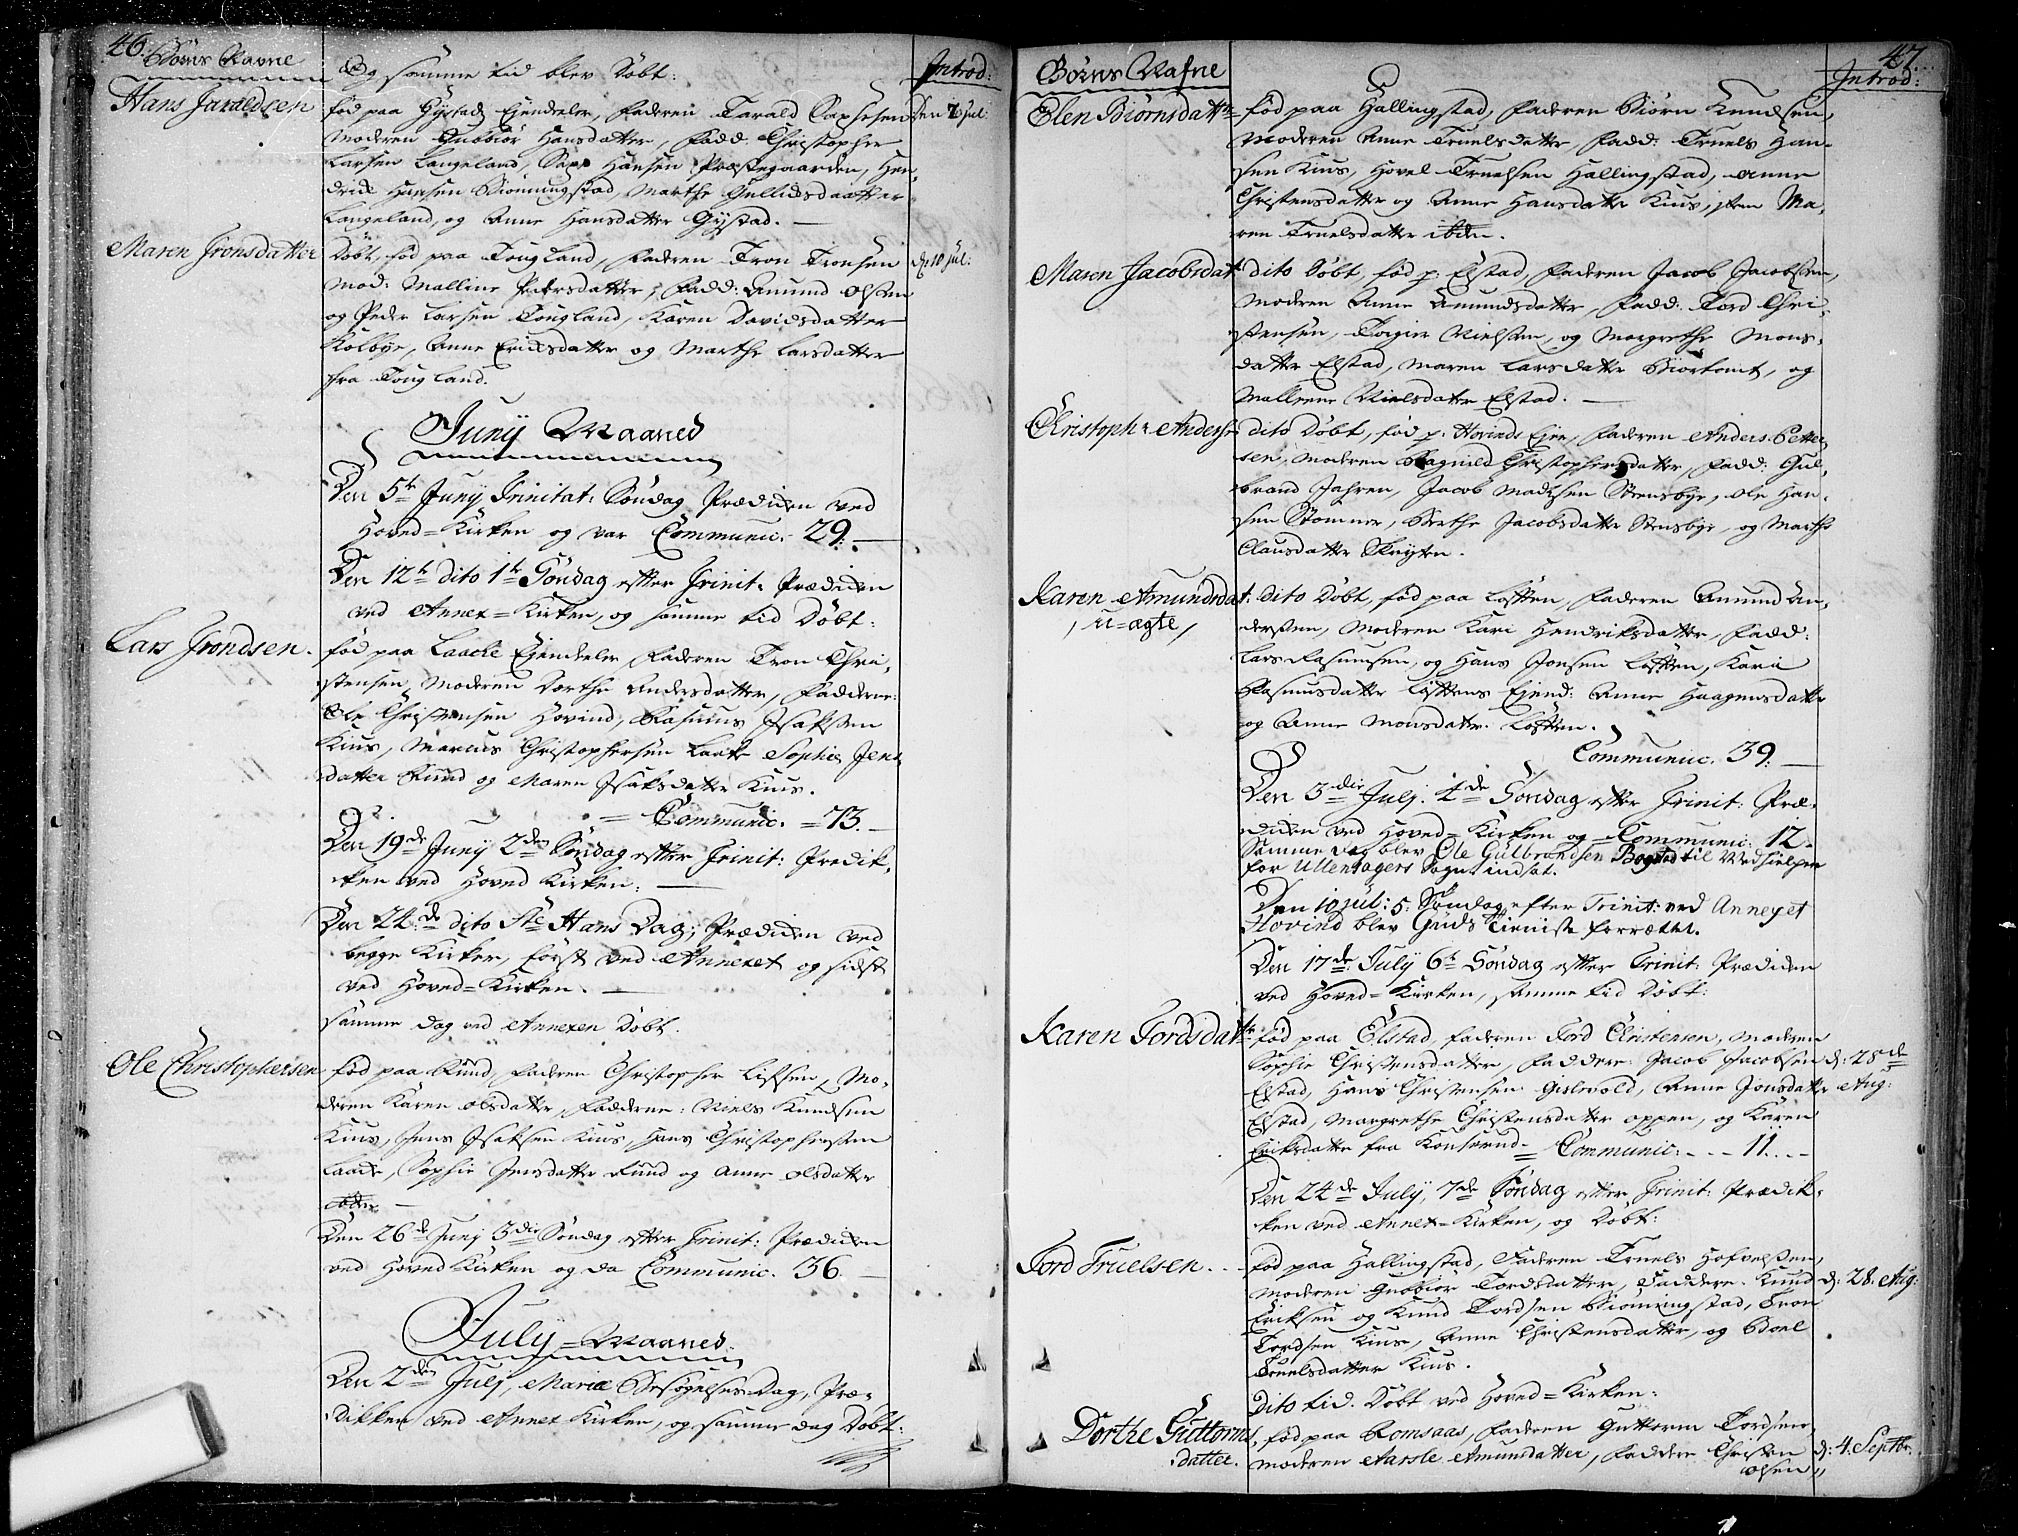 46.
Børns Navne
Og samme tid blev Døbt:
Introd:
Hans Taraldsen
fød paa Gystad Eyendeler, Faderen Tarald
Den 7 Jul:
Moderen Gubiør Hansdatter, Fadd. Christopher
Larsen Langeland, Hansen Præstegaarden, Hen-
drich Hansen Biønningstad, Marthe Gullichsdaatter
Langeland, og Anne Hansdatter Gystad. —
Maren Tronsdatter
Døbt, fød paa Tougland, Faderen Tron Tronsen
d. 10 Jul:
Mod: Malline Pedersdatter, Fadd: Amund Olsen
og Peder Larsen Tougland, Karen Davidsdatter
Kolbye, Anne Erichsdatter og Marthe Larsdatter
fra Tougland.
Juny Maaned
Den 5te Juny Trinitat: Søndag Prædiken ved
Hoved=Kirken og var Communic. 29. —
Den 12te dito 1te Søndag efter Trinit: Prædiken
ved Annex=Kirken, og samme tid Døbt:
Lars Trondsen.
fød paa Laache Eyendeeler, Faderen Tron Chri-
stensen, Moderen Dorthe Andersdatter, Faddere:
Ole Christensen Hovind, Rasmus Isaksen
Kius, Marcus Christophersen Laake Sophie Jens
datter Rund og Maren Isaksdatter Kius.
= Communic. = 73. —
Den 19de Juny 2den Søndag efter Trinit: Prædik-
ken ved Hoved Kirken. —
Den 24de dito Ste Hans Dag; Prædiken ved
begge Kirker, først ved Annexet og sidst
ved Hoved=Kirken. —
samme dag ved Annexen Døbt.
Ole Christophersen
fød paa Rund, Faderen Christopher Mo-
deren Karen Olsdatter, Faddere: Niels Knudsen
Kius, Jens Isaksen Kius, Hans Christophersen
Laache, Sophie Jensdatter Rund og Anne Olsdatter
ibidem —
Den 26de Juny 3die Søndag efter Trinit: Prædiken
ved Hoved Kirken og da Communic. 36. —
July=Maaned.
Den 2den July, Mariæ Besøgelses Dag, Præ-
dikken ved Annex Kirken, og samme dag Døbt:
47.
Børns Nafne
Introd:
Elen Biørnsdattr
fød paa Hallingstad, Faderen Biørn Knudsen,
Moderen Anne Truelsdatter, Fadd: Truels Han-
sen Kius, Hovel Truelsen Hallingstad, Anne
Christensdatter og Anne Hansdatter Kius, item Ma-
ren Truelsdatter ibdem.
Maren Jacobsdat:
dito Døbt, fød p: Elstad, Faderen Jacob Jacobsen,
Moderen Anne Amundsdatter, Fadd: Tord Chri-
stensen, Torgier Nielsen, og Margrethe Mons-
datter Elstad, Maren Larsdatter Biortomt, og
Malleene Nielsdatter Elstad. —
Christoph: Anders:
dito Døbt, fød p: Hovinds Eyen, Faderen Anders Petter-
sen, Moderen Ragnild Christophersdatter, Fadd: Gul-
brand Jahren, Jacob Madtzsen Stensbye, Ole Han-
sen Stomner, Berthe Jacobsdatter Stensbye, og Marthe
Clausdatter Skryten.
Karen Amundsdat:
/ u=ægte /
dito Døbt, fød paa Løften, Faderen Amund An-
dersen, Moderen Kari Hendriksdatter, Fadd:
Lars Rasmusen, og Hans Jonsen Løften, Kari
Rasmusdatter Løftens Eyend: Anne Haagensdatter
og Anne Monsdattr. Løften.
Communic. 39. —
Den 3die July. 4de Søndag efter Trinit: Præ-
diken ved Hoved=Kirken og Communic: 12.
Samme dag blev Ole Gulbrandsen Bogstad til Medhielper
for Ullensagers Sogn indsat.
Den 10 Jul: 5. Søndag efter Trinit: ved Annexet
Hovind blev Guds Tieniste forrættet.
Den 17de July 6te Søndag efter Trinit: Prædiken
ved Hoved=Kirken, samme tid Døbt:
Karen Tordsdattr
fød paa Elstad, Faderen Tord Christensen, Moderen
Sophie Christensdatter, Faddere: Jacob Jacobsen
d: 28de
Elstad, Hans Christensen Gislevold, Anne Jonsdatter
Aug:
Elstad, Margrethe Christensdatter Oppen, og Karen
Eriksdatter fra Konserud = Communic: - - - 11. - - -
Den 24de July, 7de Søndag efter Trinit: Prædik-
ken ved Annex=Kirken, og Døbt:
Tord Truelsen.
fød paa Hallingstad, Faderen Truels Hofvelsen,
Moderen Gubiør Tordsdatter, Faddere. Knud
d: 28. Aug:
Eriksen og Knud Tordsen Biønningstad, Tron
Tordsen Kius, Anne Christensdatter, og Boel
Truelsdatter Kius.
Dito tid. Døbt ved Hoved=Kirken:
Dorthe Guttorms
datter.
fød paa Romsaas, Faderen Guttorm Tordsen,
Moderen Aasele Amundsdatter, Faddere Christen
d: 4. Septbr.
Olsen